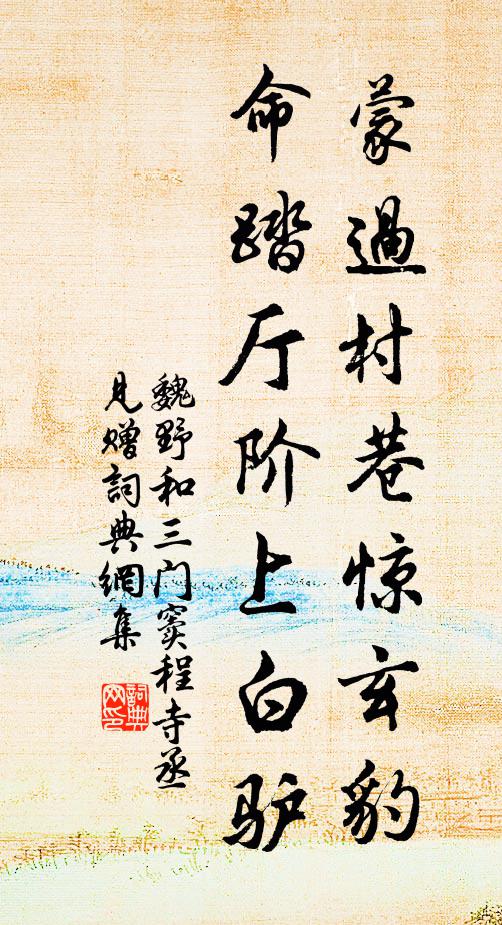 蒙過村巷惊玄豹
命踏厅阶上白驴
魏野和三门窦程寺丞
见赠詞典網集
詞典
网印